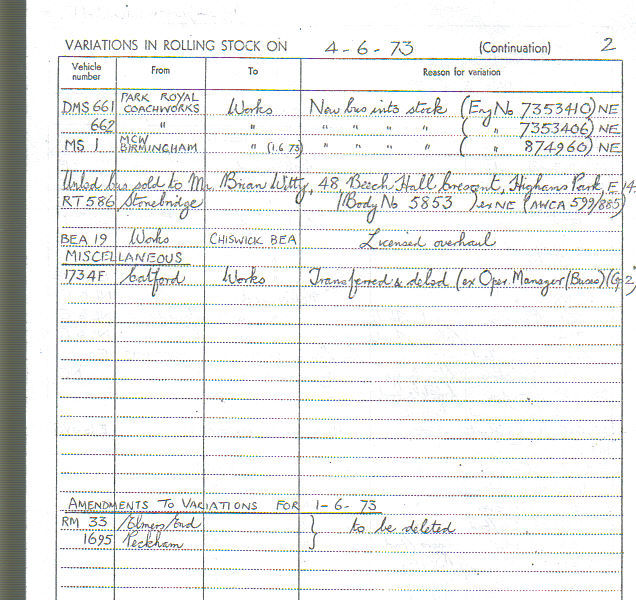 VARIATIONS IN ROLLING STOCK ON 4-6-73 (Continuation) 2
Vehicle number From To Reason for variation
DMS 661 PARK ROYAL COACHWORKS Works New bus into stock (Eng No 7353410) NE
662 " " " " " " ( " 7353406) NE
MS 1 MCW BIRMINGHAM " (1.6.73) " " " " ( " 874960) NE
Unlcd bus sold to Mr. Brian Witty, 48, Beech Hall Crescent, Highams Park, E.14.
RT 586 Stonebridge (Body No 5853 ) ex NE (AWCA 599/885)
BEA 19 Works CHISWICK BEA Licensed overhaul
MISCELLANEOUS
1734F Catford Works Transferred & delcd (ex Oper. Manager (Buses) (G-2)
AMENDMENTS TO VARIATIONS FOR 1-6-73
RM 33 Elmers End } to be deleted
1695 Peckham